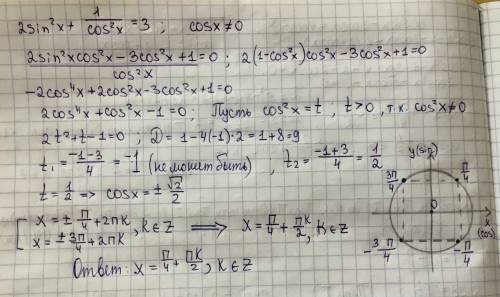 2sin²x + 1/cos²x = 3 ; cosx≠0
(2sin²xcos²x - 3cos²x + 1)/cos²x = 0 ; 2(1-cos²x)cos²x - 3cos²x + 1 = 0
-2cos⁴x + 2cos²x - 3cos²x + 1 = 0
2cos⁴x + cos²x - 1 = 0 ; Пусть cos²x = t , t>0 , т.к. cos²x≠0
2t² + t - 1 = 0 ; D = 1 - 4(-1)·2 = 1 + 8 = 9
t₁ = (-1-3)/4 = -1 (не может быть) ; t₂ = (-1+3)/4 = 1/2
t = 1/2 => cosx = ± √2/2
[ x = ± П/4 + 2пк
x = ± 3П/4 + 2пк , k∈Z ⟹ x = П/4 + Пк/2 , k∈Z
Ответ: x = П/4 + Пк/2 , k∈Z
y(sin)
3П/4
П/4
0
x
(cos)
-3П/4
-П/4